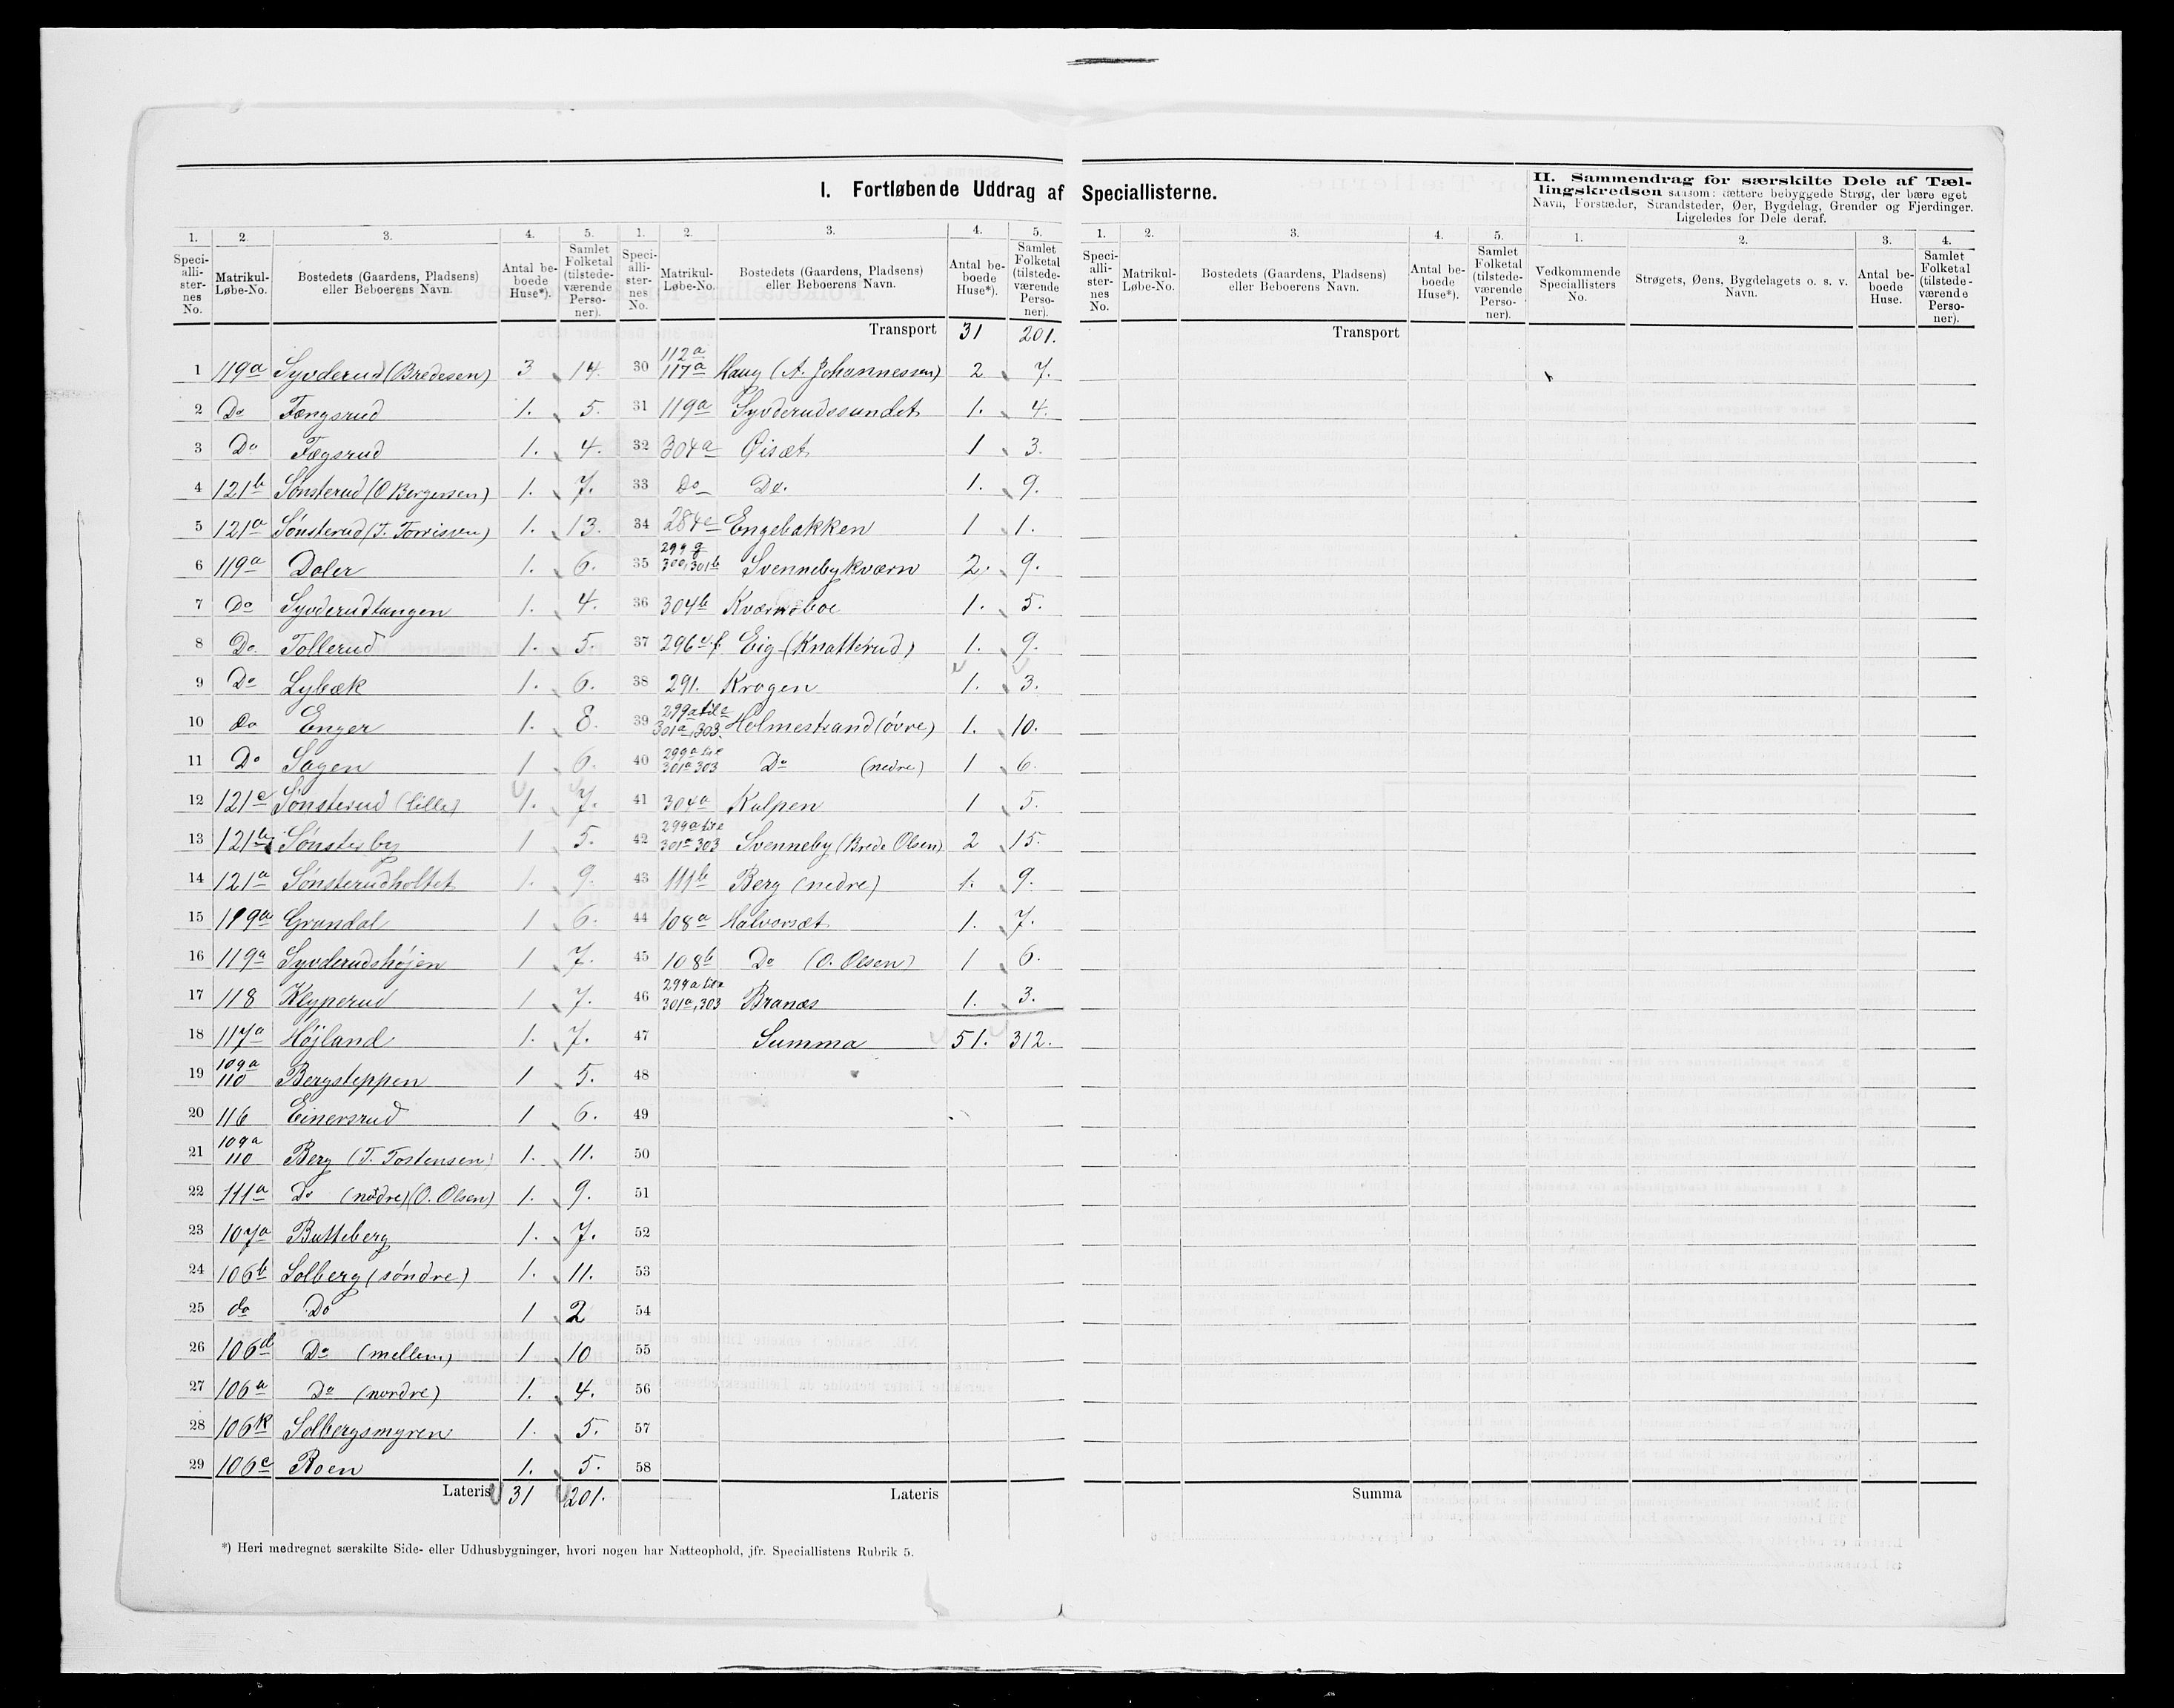 I. Fortløbende Uddrag af Speciallisterne.
II. Sammendrag for særskilte Dele af Tællingskredsen saasom: tættere bebyggede Strøg, der bære eget Navn, Forstæder, Strandsteder, Øer, Bygdelag, Grender og Fjerdinger. Ligeledes for Dele deraf.
1. 2. 3. 4. 5.
Speciallisternes No. Matrikul-Løbe-No. Bostedets (Gaardens, Pladsens) eller Beboerens Navn. Antal beboede Huse*). Samlet Folketal (tilstedeværende Personer).
1 119a Syverud (Bredesen) 3 14.
2 Do Fængsrud 1. 5.
3 Do Fægsrud 1. 4.
4 121b Sønsterud (O Bergersen) 1. 7.
5 121a Sønsterud (T. Torrissen) 1. 13.
6 119a Daler 1. 6.
7 Do Syverudtangen 1. 4.
8 Do. Tollerud 1. 5.
9 Do Lybæk 1. 6.
10 do Enger 1. 8.
11 Do Sagen 1 6.
12 121c Sønsterud (lille) 1. 7.
13 121b Sønsterby 1 5.
14 121a Sønsterudholtet 1. 9.
15 119a Grandal 1 6.
16 119a Syverudshøjen 1 7.
17 118 Klyperud 1 7.
18 117a Højland 1. 7.
19 109a 110 Bergsteppen 1 5.
20 116 Einersrud 1 6.
21 109a 110 Berg (T. Tostensen) 1. 11.
22 111a Do (nødre) (O. Olsen) 1. 9.
23 107a Butteberg 1. 7.
24 106b Solberg (søndre) 1. 11.
25 do Do 1 2
26 106d Do (mellem) 1 10
27 106a Do (nordre) 1. 4.
28 106k Solbergsmyren 1. 5.
29 106c Roen 1. 5.
Lateris 31 201.
1. 2. 3. 4. 5.
Speciallisternes No. Matrikul-Løbe-No. Bostedets (Gaardens, Pladsens) eller Beboerens Navn. Antal beboede Huse*). Samlet Folketal (tilstedeværende Personer).
Transport 31 201.
30 112a 117a Haug (A. Johannessen) 2 7.
31 119a Syverudssundet 1. 4.
32 304a Øisæt 1 3.
33 Do Do. 1. 9.
34 284c Engebakken 1 1.
35 299g 300, 301b Svennebykværn 2. 9.
36 304b Kværnoboe 1. 5.
37 296 f Eig (Knatterud) 1. 9.
38 291. Krogen 1. 3.
39 299a til e 301a, 303. Holmestrand (øvre) 1. 10.
40 299a til e 301a 303 Do (nedre) 1 6.
41 304a Kalpen 1 5.
42 299a til e 301a 303 Svenneby (Brede Olsen) 2 15.
43 111b Berg (nedre) 1. 9.
44 108a Halvorsæt 1. 7.
45 108b Do (O. Olsen) 1 6.
46 299a til e 301a, 303 Branæs 1. 3.
47 Summa 51. 312.
48
49
50
51
52
53
54
55
56
57
58
Lateris
1. 2. 3. 4. 5.
Speciallisternes No. Matrikul-Løbe-No. Bostedets (Gaardens, Pladsens) eller Beboerens Navn. Antal beboede Huse*). Samlet Folketal (tilstedeværende Personer).
Transport
Summa
1. 2. 3. 4.
Vedkommende Speciallisters No. Strøgets, Øens, Bygdelagets o. s. v. Navn. Antal beboede Huse. Samlet Folketal (tilstedeværende Personer).
*) Heri medregnet særskilte Side- eller Udhusbygninger, hvori nogen har Natteophold, jfr. Speciallistens Rubrik 5.